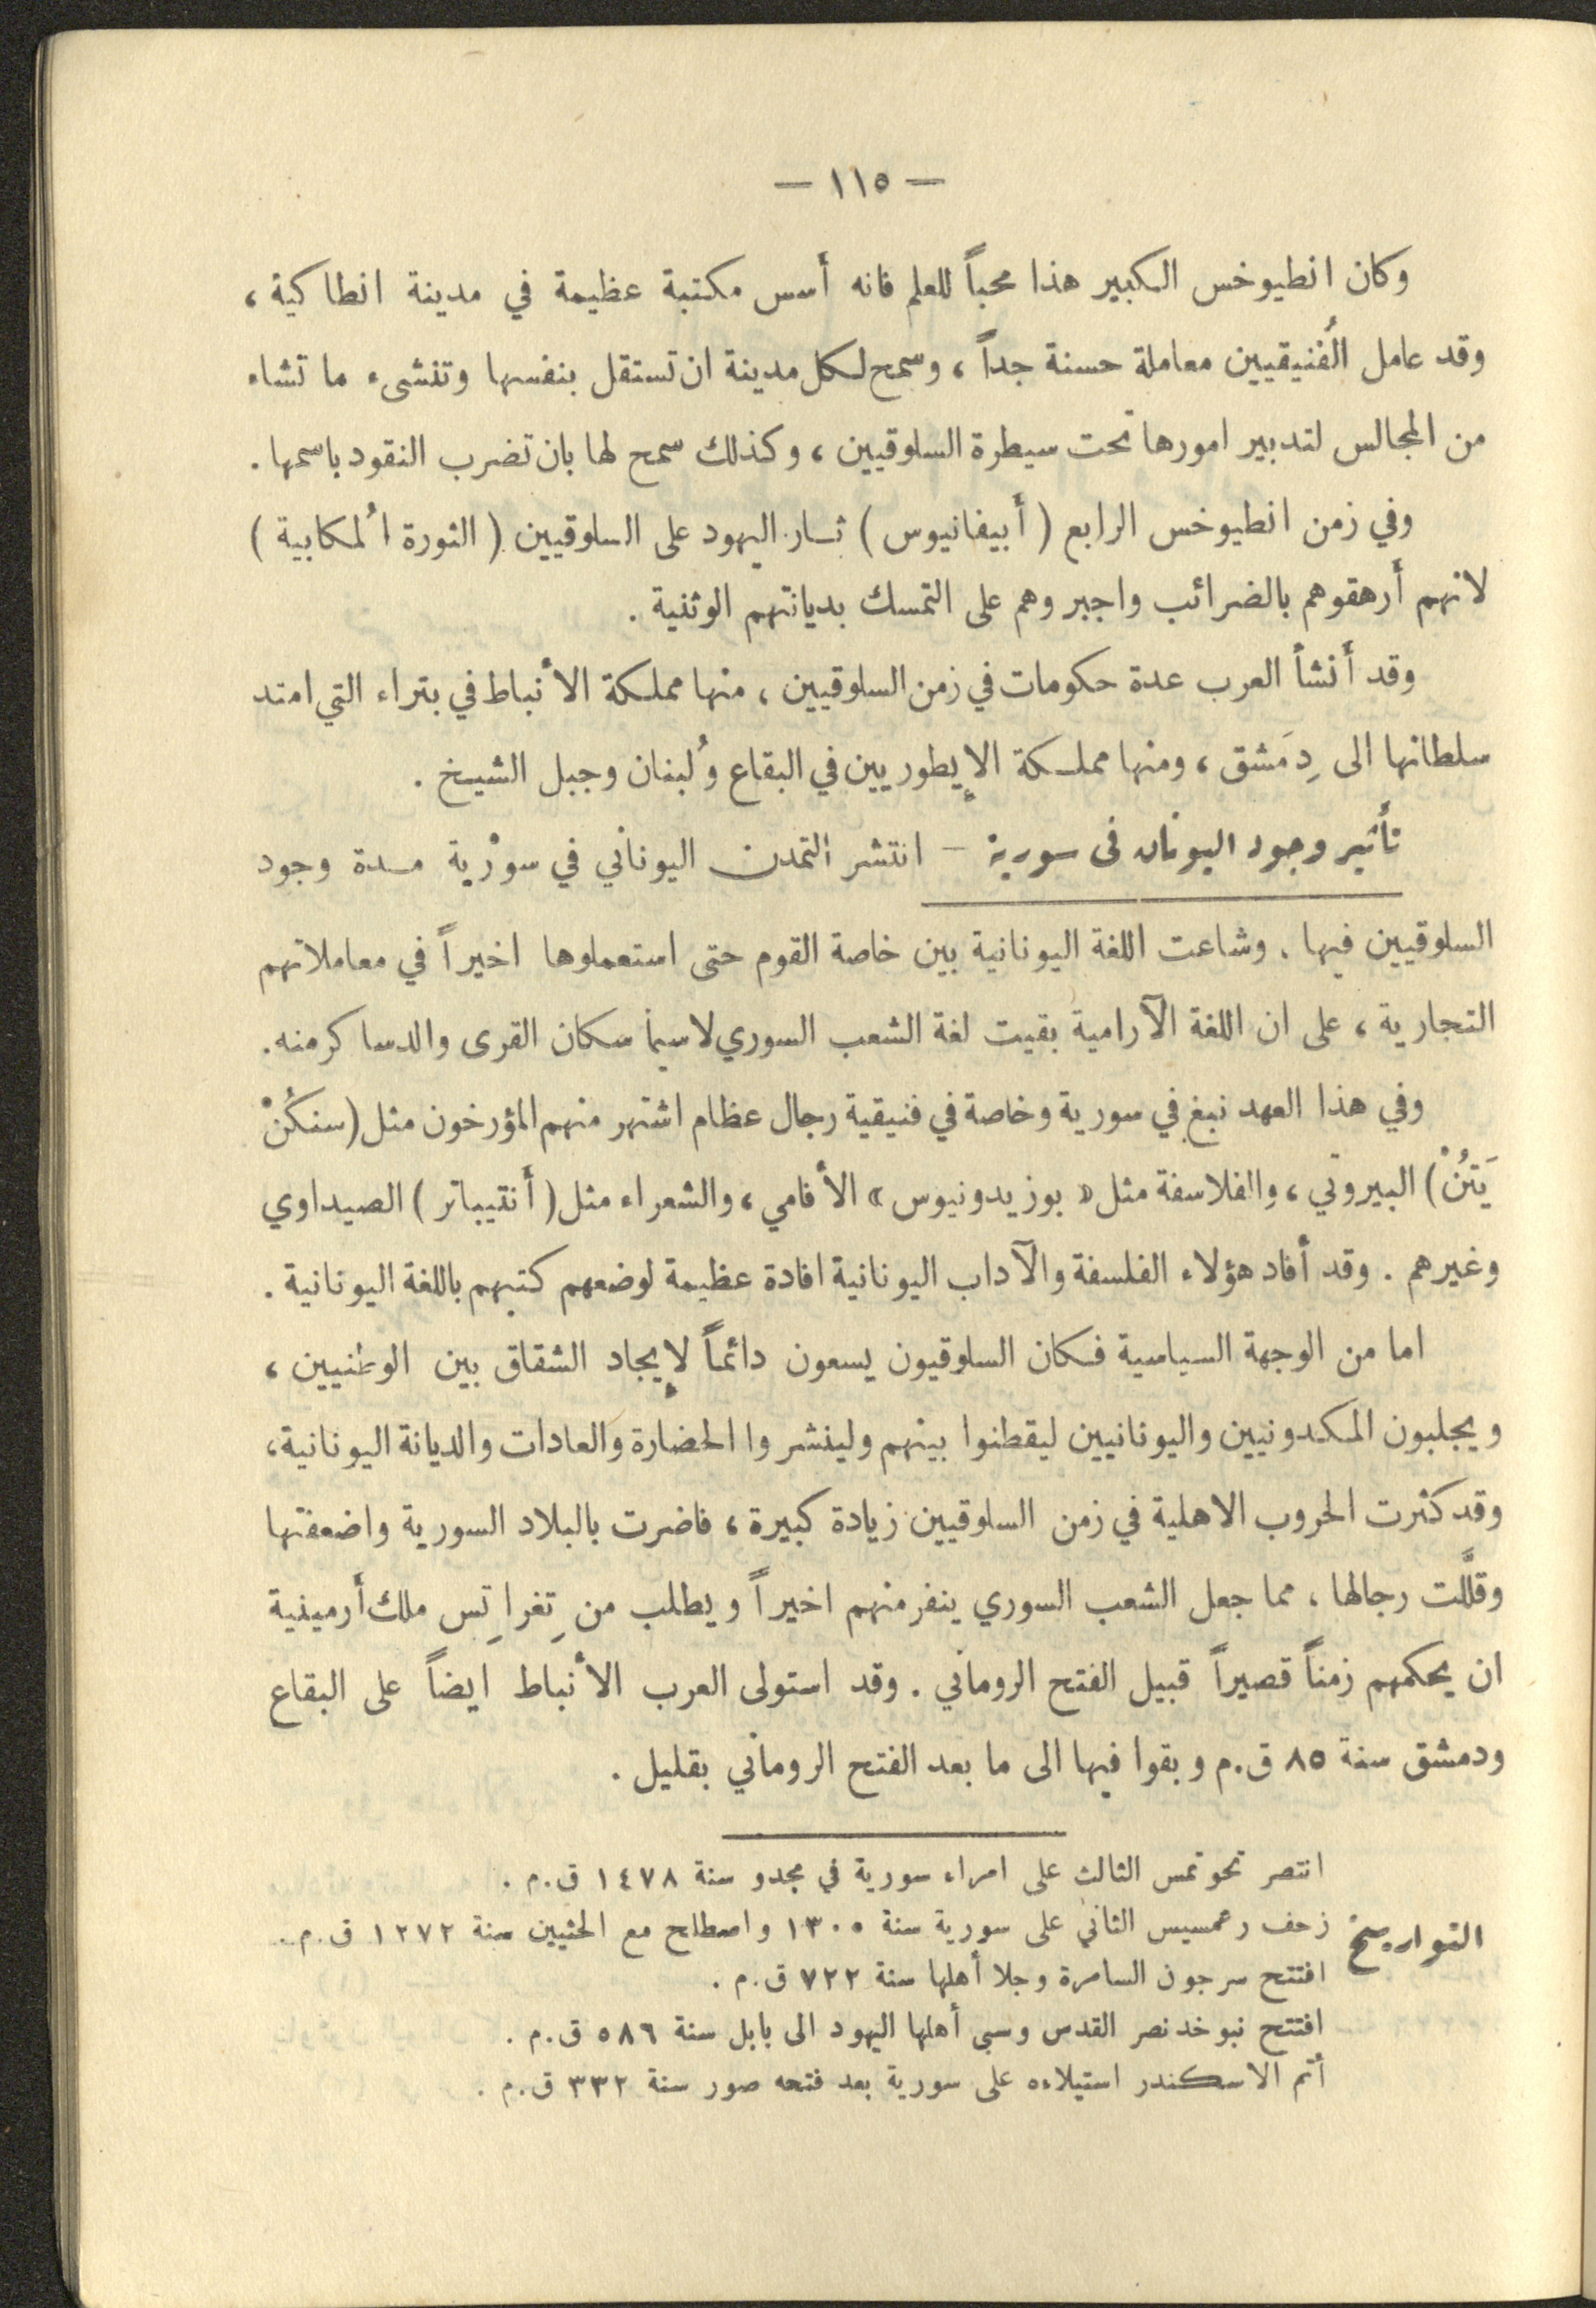 — ١١٥ —
وكان انطيوخس الكبير هذا محباً للعلم فانه أسس مكتبة عظيمة في مدينة انطاكية ،
وقد عامل الفُنيقيين معاملة حسنة جداً ، وسمح لكل مدينة ان تستقل بنفسها وتنشىء ما تشاء
من المجالس لتدبير امورها تحت سيطرة السلوقيين ، وكذلك سمح لها بان تضرب النقود باسمها .
وفي زمن انطيوخس الرابع ( أبيفانيوس ) ثار اليهود على السلوقيين ( الثورة المُكابية )
لانهم أرهقوهم بالضرائب واجبروهم على التمسك بديانتهم الوثنية .
وقد أنشأ العرب عدة حكومات في زمن السلوقيين ، منها مملكة الأنباط في بتراء التي امتد
سلطانها الى دِمَشق ، ومنها مملكة الإيطوريين في البقاع ولُبنان وجبل الشيخ .
تأثير وجود اليونان في سورية – انتشر التمدن اليوناني في سورية مدة وجود
السلوقيين فيها . وشاعت اللغة اليونانية بين خاصة القوم حتى استعملوها اخيراً في معاملاتهم
التجارية ، على ان اللغة الآرامية بقيت لغة الشعب السوري لاسيما سكان القرى والدساكر منه .
وفي هذا العهد نبغ في سورية وخاصة في فنيقية رجال عظام اشتهر منهم المؤرخون مثل ( سنكُنْ
يَتُنْ ) البيروتي ، والفلاسفة مثل « بوزيدونيوس » الأفامي ، والشعراء مثل ( أنتيباتر ) الصيداوي
وغيرهم . وقد أفاد هؤلاء الفلسفة والآداب اليونانية افادة عظيمة لوضعهم كتبهم باللغة اليونانية .
اما من الوجهة السياسية فكان السلوقيون يسعون دائماً لإيجاد الشقاق بين الوطنيين ،
ويجلبون المكدونيين واليونانيين ليقطنوا بينهم ولينشروا الحضارة والعادات والديانة اليونانية ،
وقد كثرت الحروب الاهلية في زمن السلوقيين زيادة كبيرة ، فاضرت بالبلاد السورية واضعفتها
وقلَّلت رجالها ، مما جعل الشعب السوري ينفر منهم اخيراً ويطلب من تِغراتِس ملك أرمينية
ان يحكمهم زمناً قصيراً قبيل الفتح الروماني . وقد استولى العرب الأنباط ايضاً على البقاع
ودمشق سنة ٨٥ ق.م وبقوا فيها الى ما بعد الفتح الروماني بقليل .
انتصر تحوتمس الثالث على امراء سورية في مجدو سنة ١٤٧٨ ق.م .
التواريخ
زحف رعمسيس الثاني على سورية سنة ١٣٠٥ واصطلح مع الحثيين سنة ١٢٧٢ ق.م .
افتتح سرجون السامرة وجلا أهلها سنة ٧٢٢ ق.م .
افتتح نبوخدنصر القدس وسبى أهلها اليهود الى بابل سنة ٥٨٦ ق.م .
أتم الاسكندر استيلاءه على سورية بعد فتحه صور سنة ٣٣٢ ق.م .